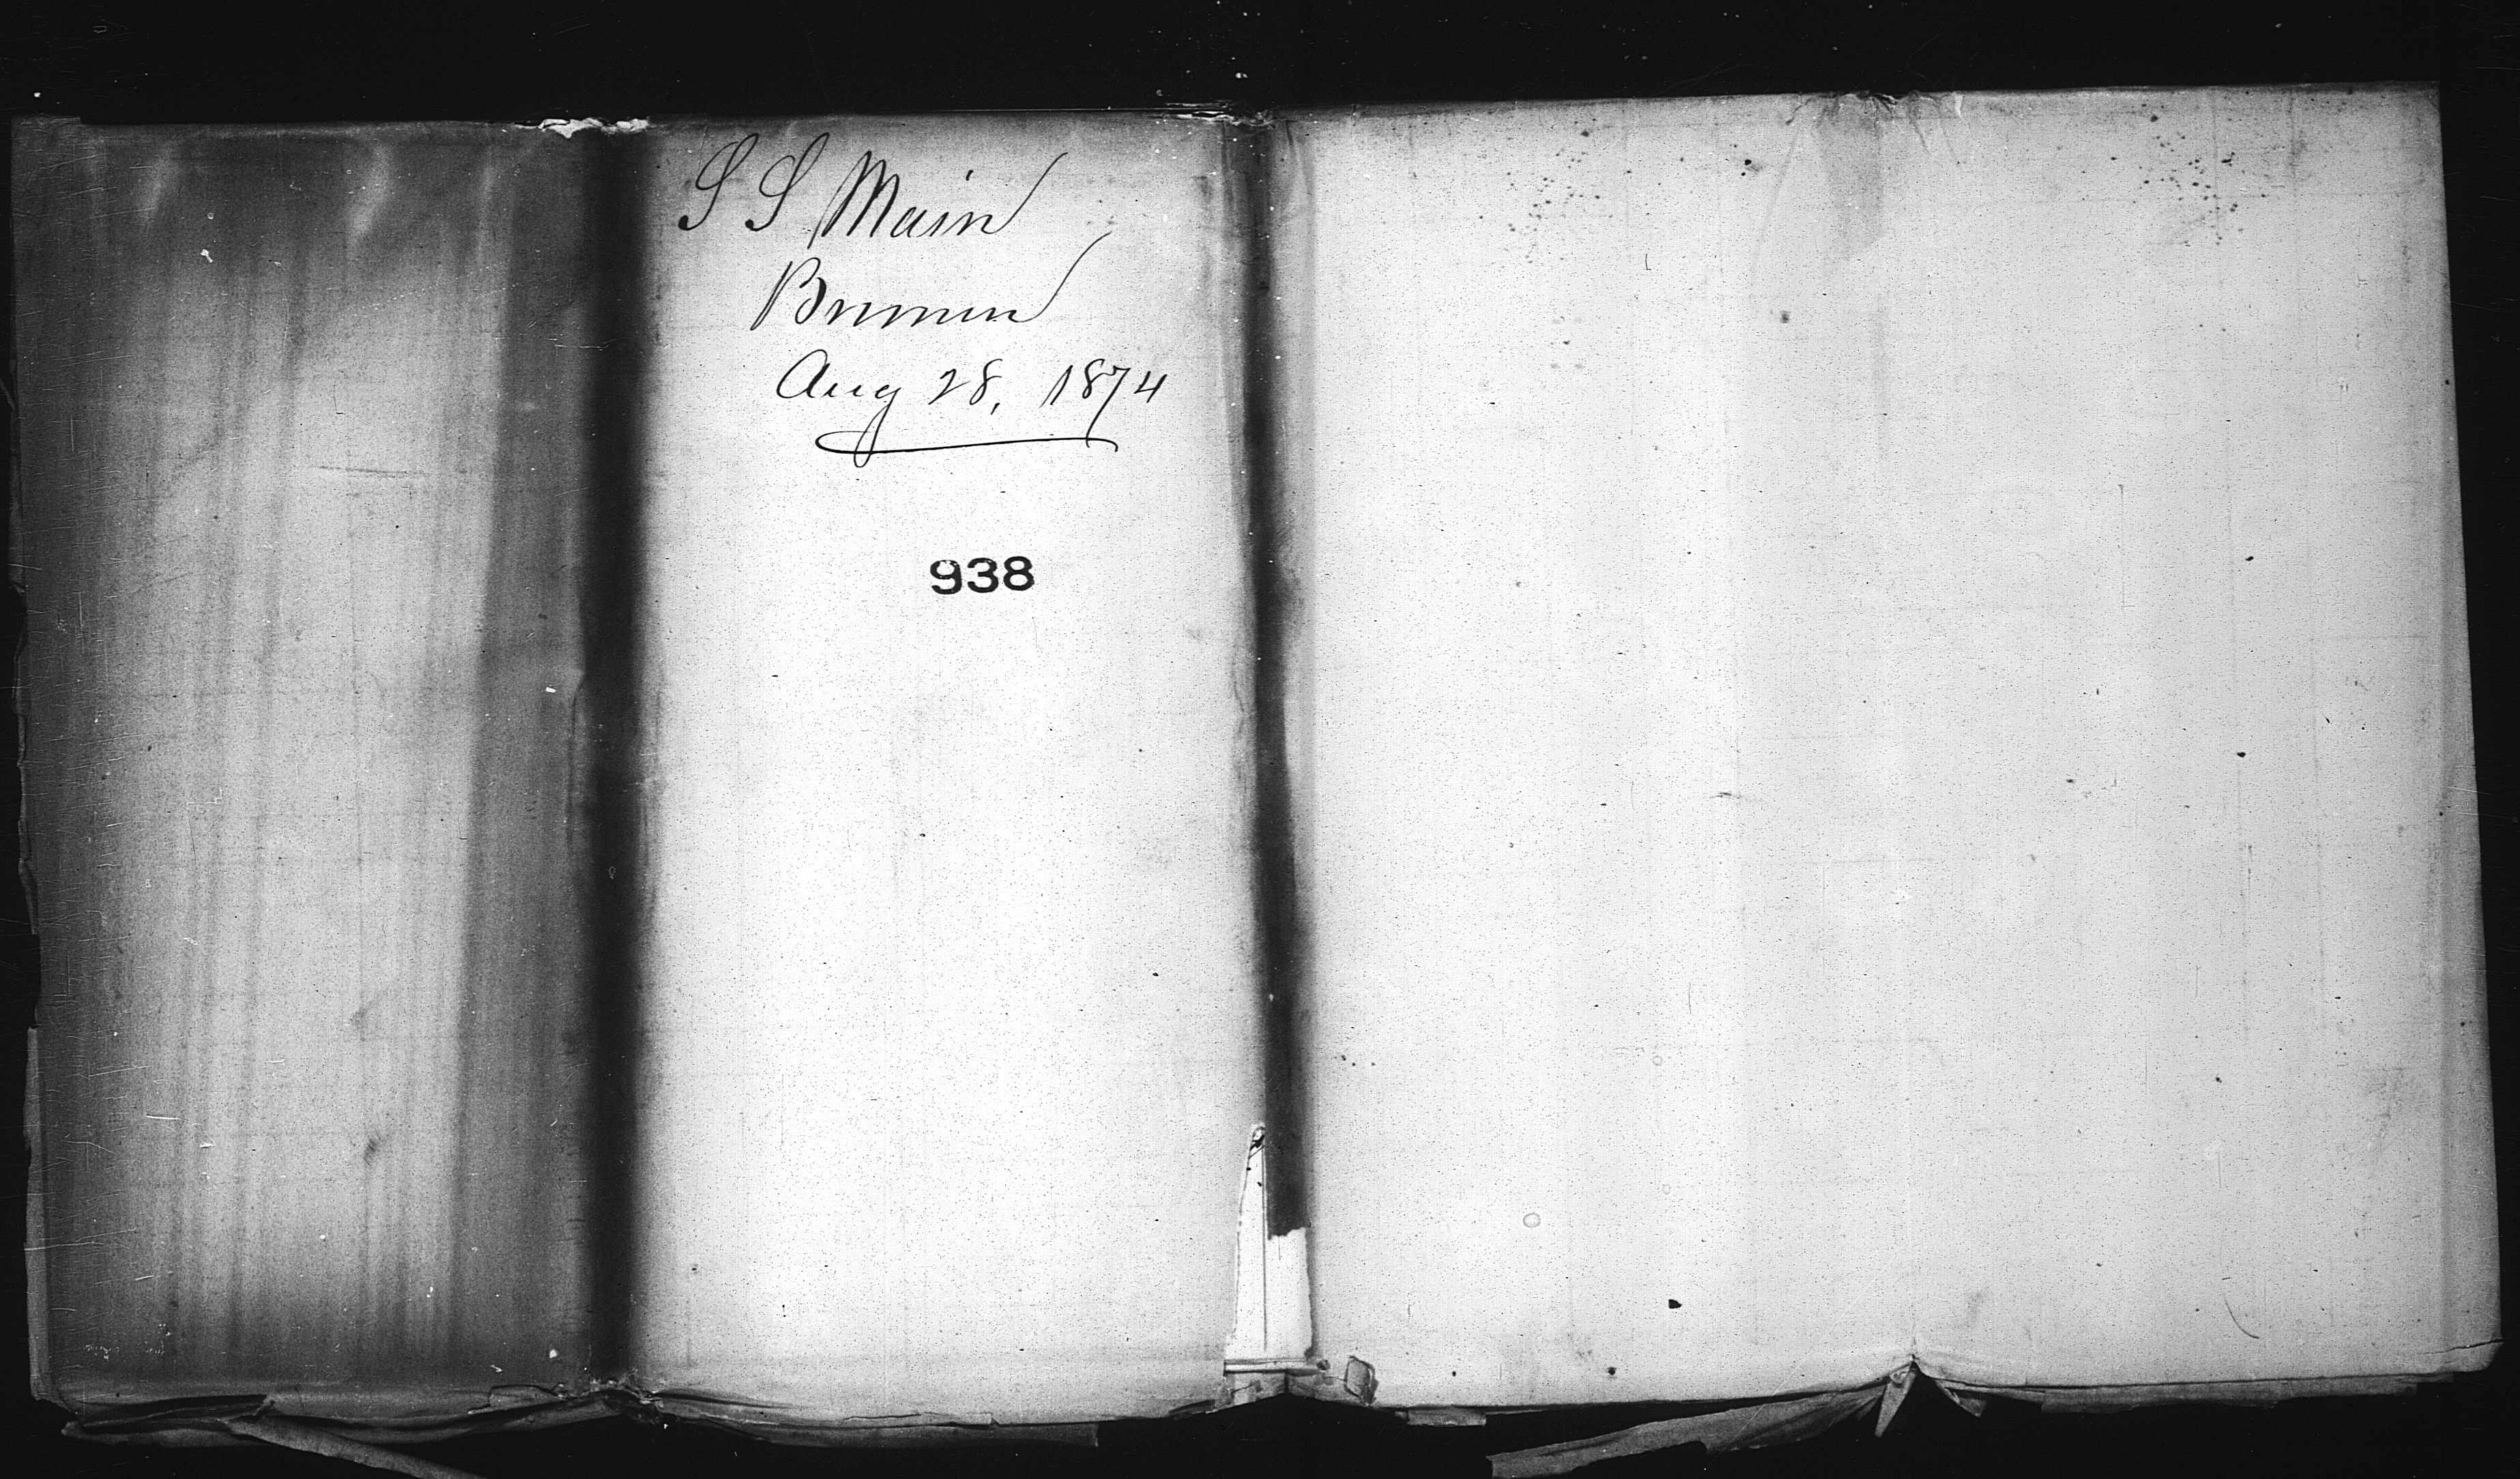 S S Main
Bremen
Aug 28, 1874
938